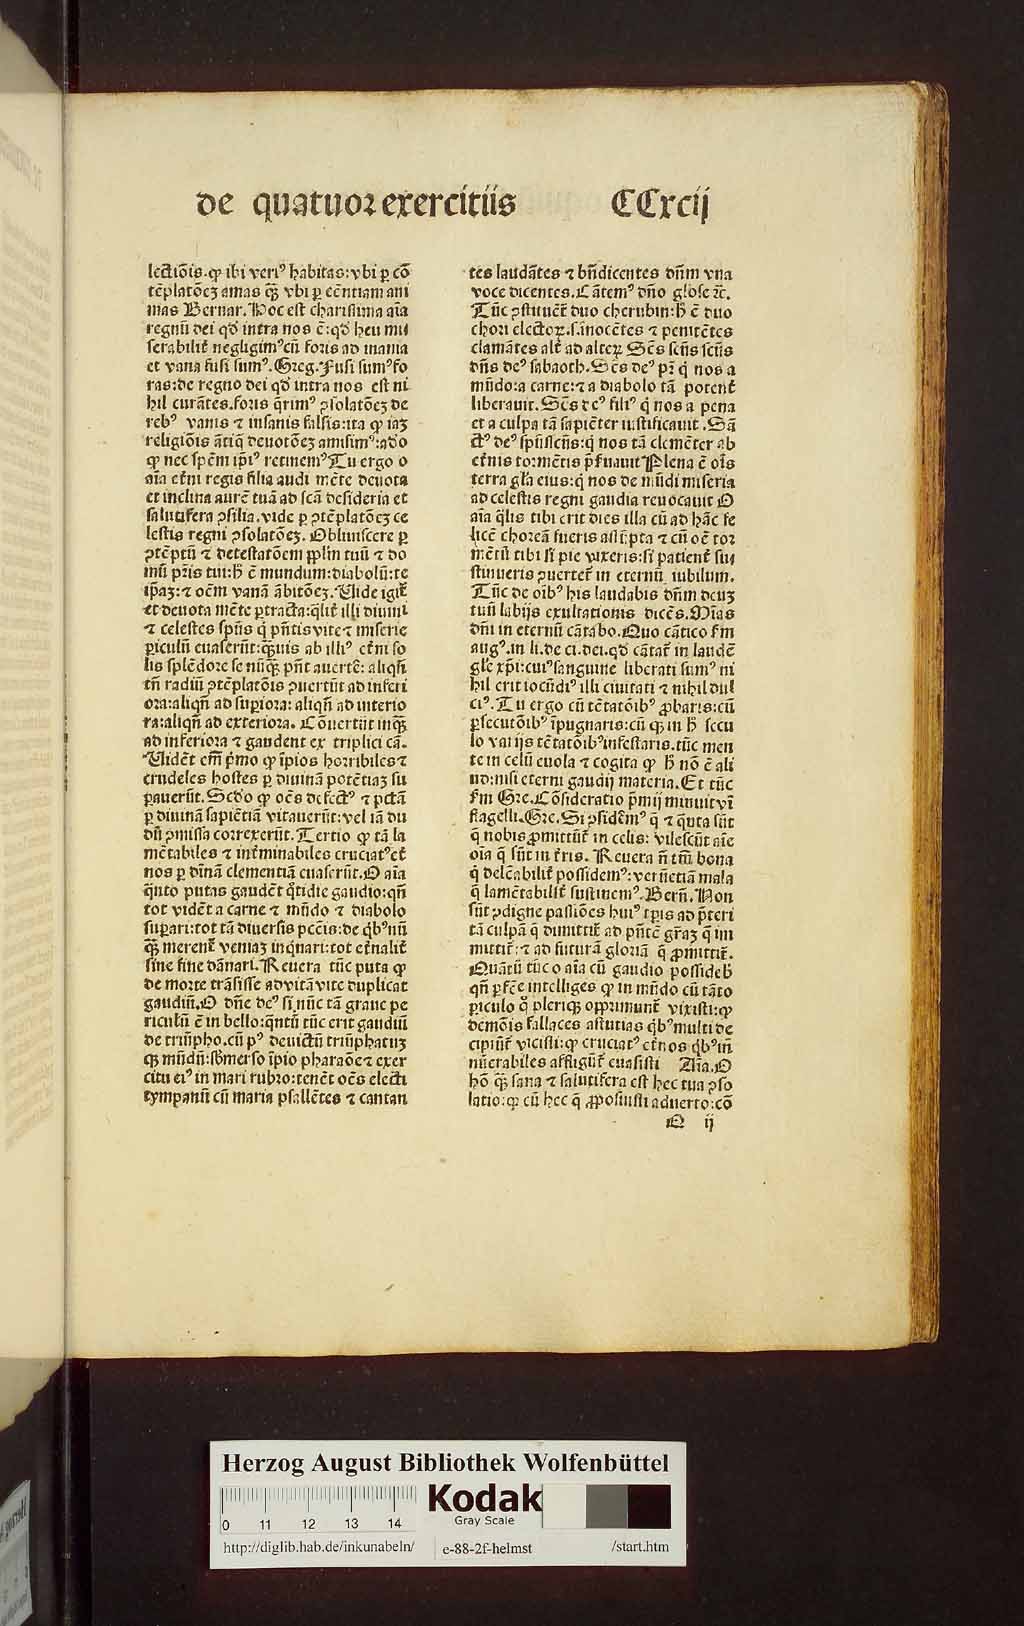 de quatuor exercitiis CCxcij
lectiōis.ꝙ ibi veriꝰ habitas:vbi ꝑ cō
tēplatōeꝫ amas qꝫ̄ vbi ꝑ eēntiam ani
mas Bernar. Hoc est charissima aīa
regnū dei qd̄ intra nos ē:qd̄ heu mi
serabilit̄ negligimꝰ cū foris ad inania
et vana fusi sumꝰ. Greg. Fusi sumꝰ fo
ras:de regno dei qd̄ intra nos est ni
hil curātes.foris q̄rimꝰ ꝯsolatōeꝫ de
rebꝰ vanis et insanis falsis:ita ꝙ iaꝫ
religiōis ātiq̄ deuotōeꝫ amisimꝰ:adō
ꝙ nec spēm ip̄iꝰ retinemꝰ Tu ergo o
aīa et̄ni regis filia audi mēte deuota
et inclina aurē tuā ad scā desideria et
salutifera ꝯsilia.vide ꝑ ꝯtēplatōeꝫ ce
lestis regni ꝯsolatōeꝫ. Obliuiscere ꝑ
ꝯtēptū ⁊ detestatōem pplm̄ tuū ⁊ do
mū pr̄is tui:h̄ ē mundum:diabolū:te
ip̄aꝫ:⁊ oēm vanā ābitōeꝫ. Vide igit̄
et deuota mēte ꝑtracta:q̄lit̄ illi diuini
⁊ celestes spūs q̄ pn̄tis vite ⁊ miserie
ꝑiculū euaserūt:qꝫ̄uis ab illiꝰ et̄ni so
lis splēdore se nūqꝫ̄ pn̄t auert̄e: aliqn̄
tn̄ radiū ꝯtēplatōis ꝯuertūt ad inferi
ora:aliqn̄ ad suꝑiora: aliqn̄ ad interio
ra:aliqn̄ ad exteriora. Cōuertūt inqꝫ̄
ad inferiora ⁊ gaudent ex triplici cā.
Vidēt em̄ p̄mo ꝙ īpios horribiles ⁊
crudeles hostes ꝑ diuinā potētiaꝫ su
ꝑauerūt. Secdo ꝙ oēs defectꝰ ⁊ pctā
ꝑ diuinā sapiētiā vitauerūt:vel iā du
dū ꝯmissa correxerūt. Tertio ꝙ tā la
mētabiles ⁊ int̄minabiles cruciatꝰ et̄
nos ꝑ diīnā clementiā euaserūt. O aīa
q̄nto putas gaudēt q̄tidie gaudio:qn̄
tot vidēt a carne ⁊ mūdo ⁊ diabolo
suꝑari:tot tā diuersis pctīs:de qͥbꝰ nūi
qꝫ̄ merent̄ veniaꝫ inqͥnari:tot et̄nalit̄
sine fine dānari. Reuera tūc puta ꝙ
de morte trāsisse ad vitā vite duplicat
gaudiū. O dn̄e deꝰ si nūc tā graue pe
riculū ē in bello:q̄ntū tūc erit gaudiū
de triūpho.cū pꝰ deuictū triūphatuꝫ
qꝫ mūdū:sb̄merso īpio pharaōe ⁊ exer
citu eiꝰ in mari rubro:tenēt oēs electi
tympanū cū maria psallētes ⁊ cantan
tes laudātes ⁊ bn̄dicentes dn̄m vna
voce dicentes.Cātemꝰ dn̄o gl̄ose ꝛc̄.
Tūc ꝯstituēt̄ duo cherubin:h̄ ē duo
chori electoꝝ.s.īnocētes ⁊ penitētes
clamātes alt̄ ad alteꝝ Scs̄ scūs scūs
dn̄s deꝰ sabaoth. Scs̄ deꝰ pr̄ q̄ nos a
mūdo:a carne:⁊ a diabolo tā potent̄
liberauit. Scs̄ deꝰ filiꝰ q̄ nos a pena
et a culpa tā sapiēter iustificauit. Sā
ct̄ꝰ deꝰ spūsscūs:q̄ nos tā clemēter ab
et̄nis tormētis p̄seruauit Plena ē oīs
terra gl̄a eius:q̄ nos de mūdi miseria
ad celestis regni gaudia reuocauit O
aīa q̄lis tibi erit dies illa cū ad hāc fe
licē choreā fueris assūpta ⁊ cū oē tor
mētū tibi si pie vixeris:si patient̄ sui
stinueris ꝯuertet̄ in eternū iubilum.
Tūc de oībꝰ his laudabis dn̄m deuꝫ
tuū labijs exultationis dicēs. Mīas
dn̄i in eternū cātabo. Quo cātico fm
augꝰ.in li.de ci.dei.qd̄ cātat̄ in laudē
gl̄e xp̄i:cuiꝰ sanguine liberati sumꝰ ni
hil erit iocūdiꝰ illi ciuitati ⁊ nihil dul
ciꝰ. Tu ergo cū tētatōibꝰ ꝓbaris:cū
ꝑsecutōibꝰ īpugnaris:cū qꝫ in h̄ secu
lo varijs tētatōibꝰ infestaris.tūc men
te in celū euola ⁊ cogita ꝙ h̄ nō ē ali
ud:nisi eterni gaudij materia. Et tūc
fm Gre. Cōsideratio p̄mij minuit vī
flagelli. Gre. Si ꝯsidēmꝰ q̄ ⁊ q̄nta sūt
q̄ nobis ꝓmittūt̄ in celis: vilescūt aīe
oīa q̄ sūt in t̄ris. Reuera n̄ tm̄ bona
q̄ delēabilit̄ possidemꝰ:verūetiā mala
q̄ lamētabilit̄ sustinemꝰ. Bern̄. Non
sūt ꝯdigne passiōes huiꝰ tꝑis ad p̄teri
tā culpā q̄ dimittit̄ ad pn̄tē gr̄aꝫ q̄ im
mittit̄:⁊ ad futurā gloriā q̄ ꝓmittit̄.
Quātū tūc o aīa cū gaudio possideb̄
qn̄ ꝑfc̄e intelliges ꝙ in mūdo cū tāto
ꝑiculo q̊ pleriqꝫ opprimunt̄ vixisti:ꝙ
demōis fallaces astutias qͥbꝰ multi de
cipiūt̄ vicisti:ꝙ cruciatꝰ et̄nos qͥbꝰ īn
nūerabiles affligūt̄ euasisti Aīa. O
hō qꝫ̄ sana ⁊ salutifera est hec tua ꝯso
latio:ꝙ cū hec q̄ ꝓposuisti aduerto:cō
O ij
Herzog August Bibliothek Wolfenbüttel
Kodak
Gray Scale
0 11 12 13 14
http://diglib.hab.de/inkunabeln/ e-88-2f-helmst /start.htm